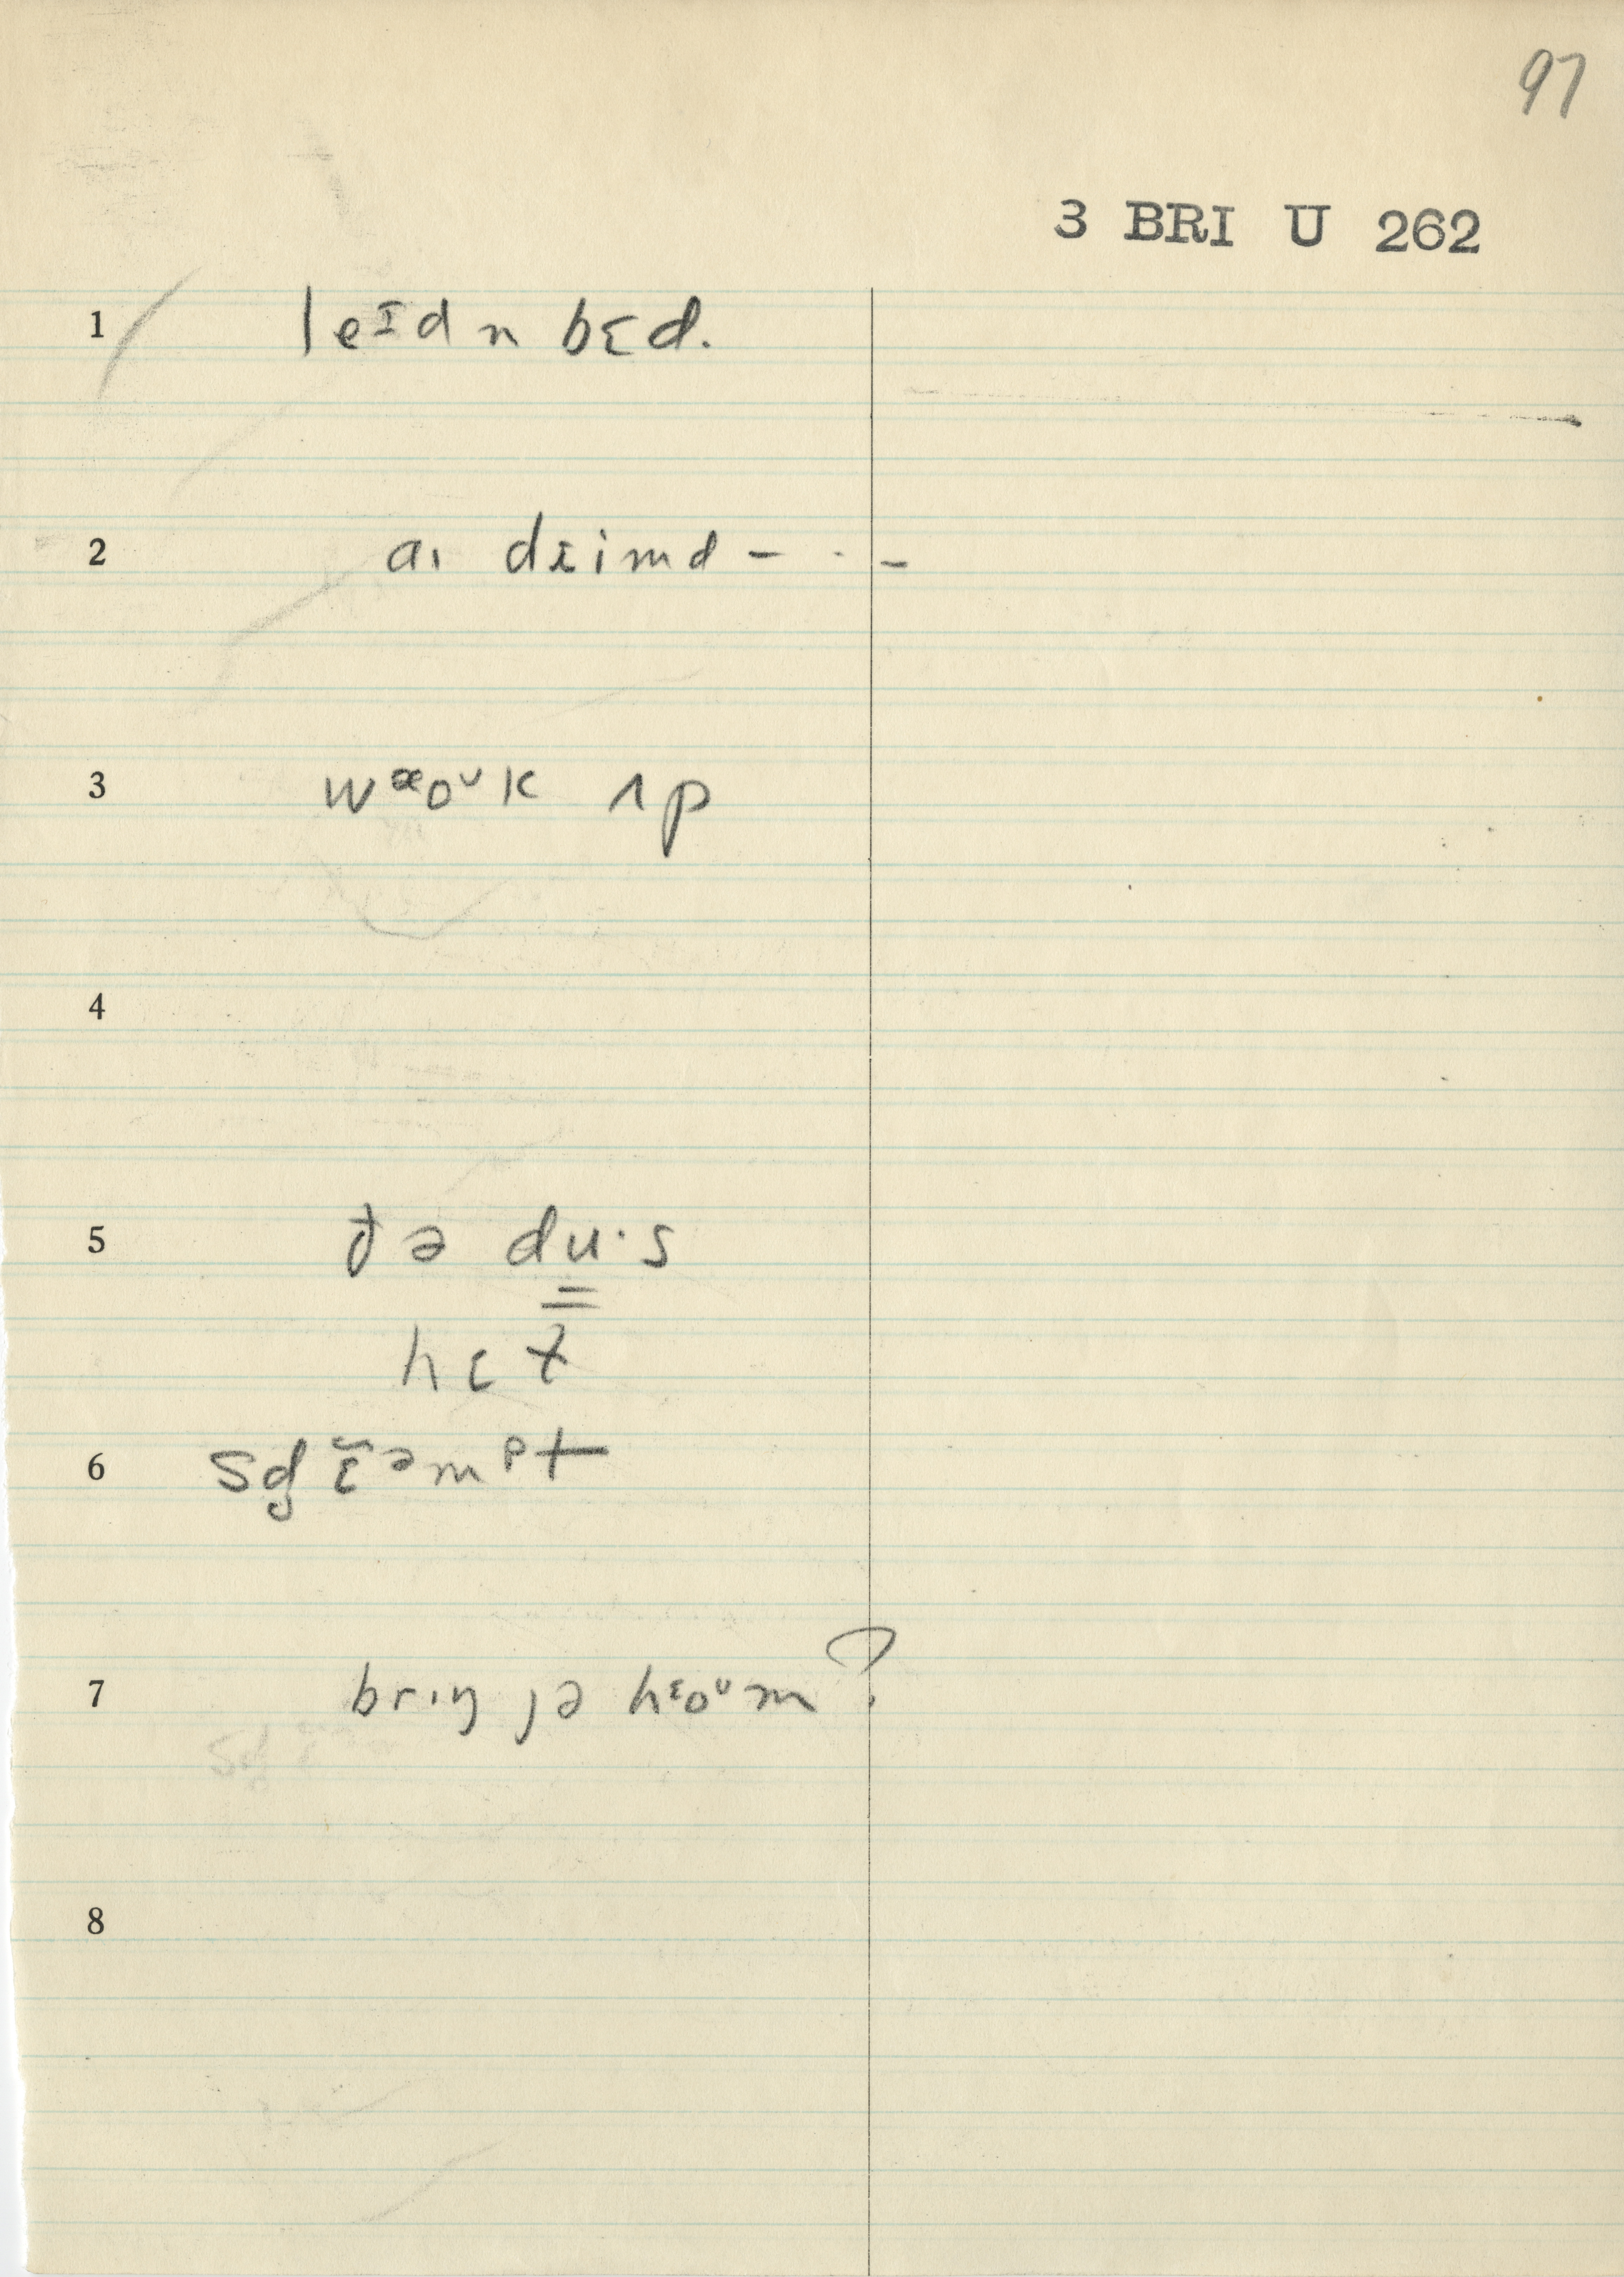 97
3 BRI U 262
1 leᶦd n bɛd.
2 aı dɛimd - · -
3 wᵆoᵘk ʌp
4
5 ðə du·s
hɛɫ
6 sdʒɛ̆ᵊmᵖt
7 br·ıŋ jə hᵋoᵘm?
8